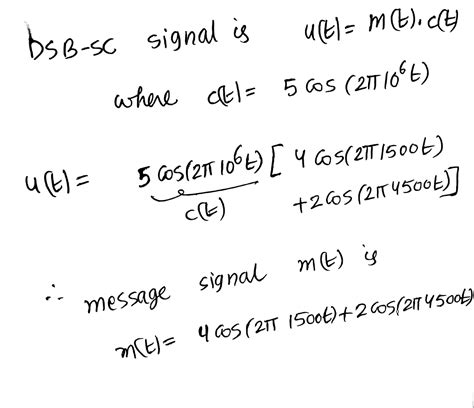 DSB-SC signal is u(t) = m(t).c(t)
where c(t) = 5 cos (2π10⁶t)
u(t) = 5 cos(2π10⁶t) [ 4 cos(2π1500t)
c(t) +2cos(2π4500t)]
∴ message signal m(t) is
m(t) = 4 cos(2π 1500t)+2 cos(2π4500t)